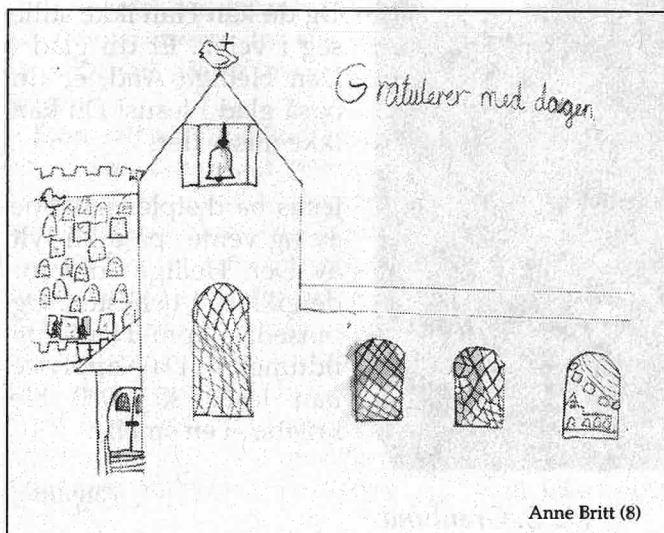 Gratulerer med dagen
Anne Britt (8)